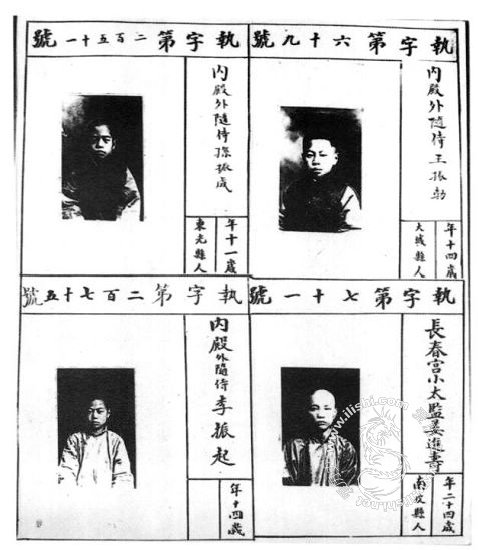 執字第六十九號
內殿外隨侍王振
年十四歲
大城縣人
執字第二百五十一號
內殿外隨侍孫振
年十一歲
東光縣人
執字第七十一號
長春宮小太監姜進壽
年二十四歲
南皮縣人
執字第二百七十五號
內殿外隨侍李振起
年十四歲
www.ilishi.com